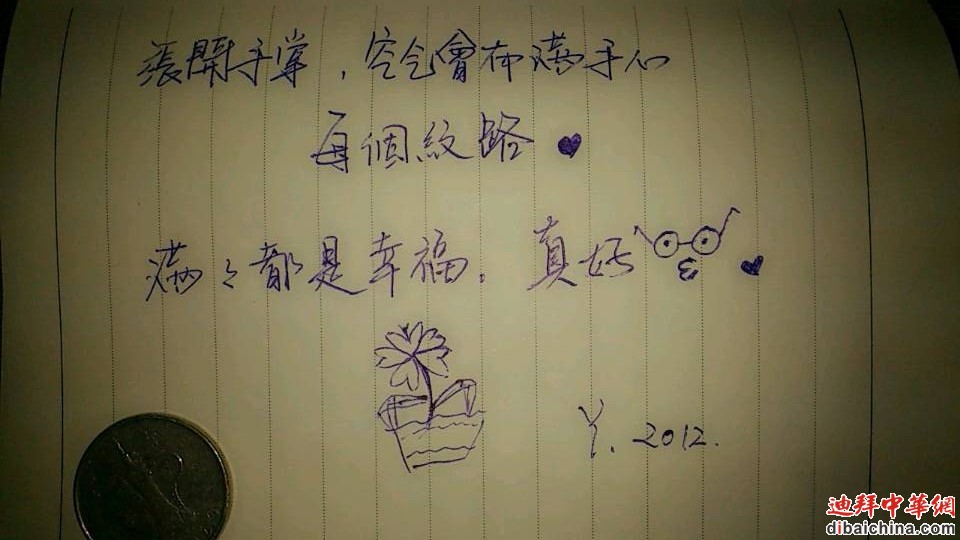 張開手掌，空气會布滿手心
每個紋路♥
滿々都是幸福．真好♥
Y. 2012.
迪拜中華網
dibaichina.com